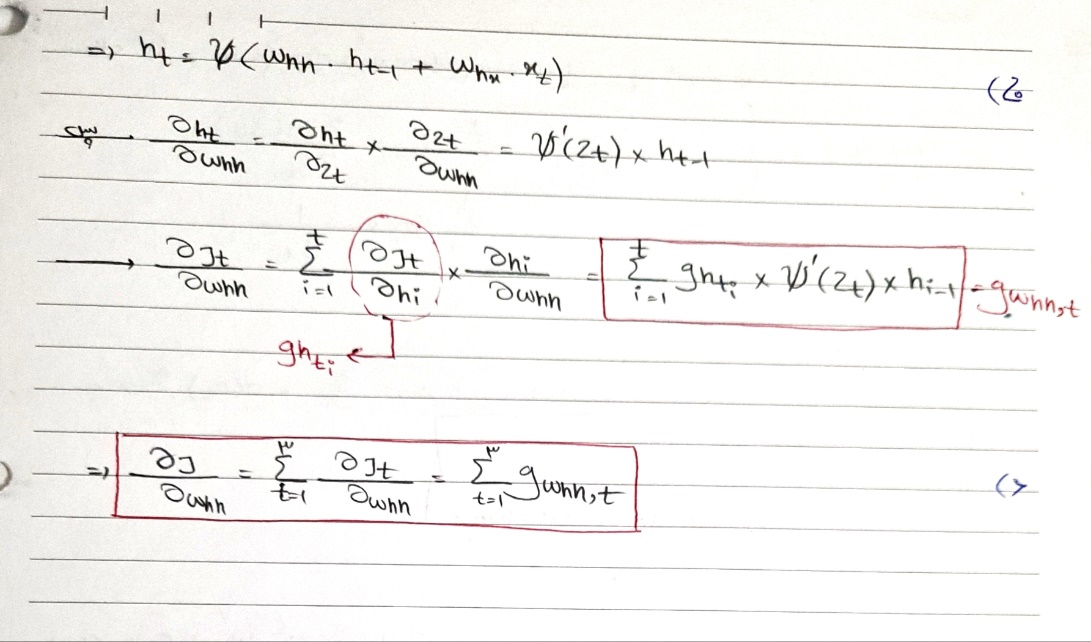 ⇒ h_t = ψ(w_hh · h_t-1 + w_hx · x_t)
∂h_t/∂w_hh = ∂h_t/∂z_t × ∂z_t/∂w_hh = ψ'(z_t) × h_t-1
→ ∂J_t/∂w_hh = Σ_{i=1}^{t} ∂J_t/∂h_i × ∂h_i/∂w_hh = Σ_{i=1}^{t} gh_ti × ψ'(z_t) × h_i-1 = g_whh,t
gh_ti ←
⇒ ∂J/∂w_hh = Σ_{t=1}^{۳} ∂J_t/∂w_hh = Σ_{t=1}^{۳} g_whh,t